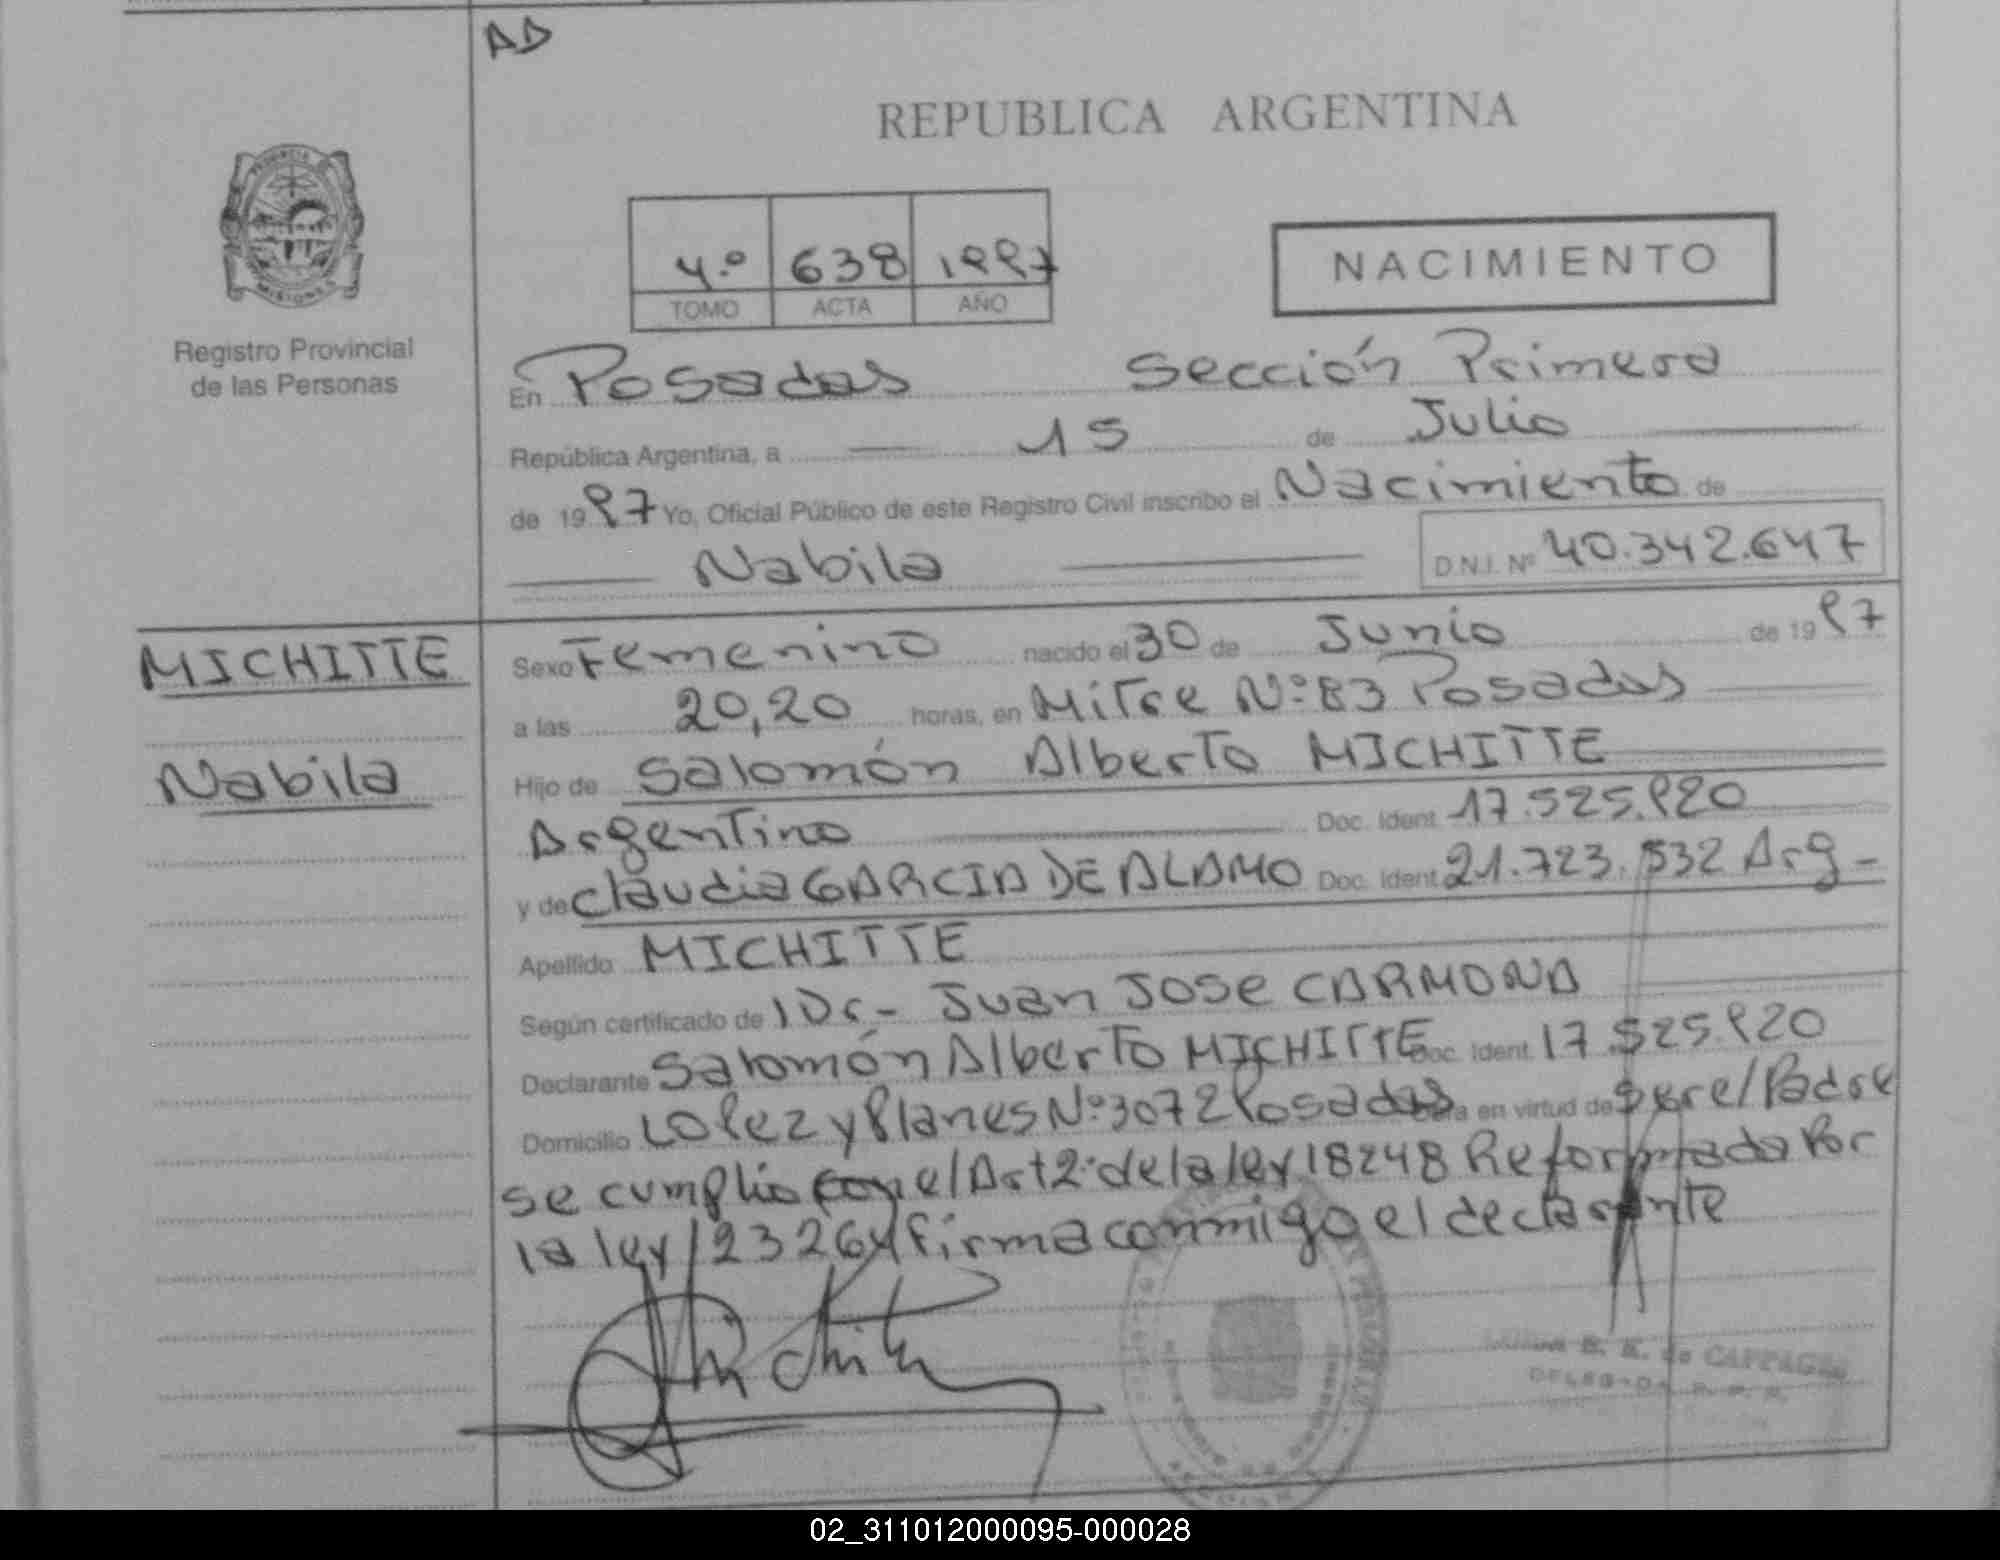 AD
REPUBLICA ARGENTINA
PROVINCIA DE
MISIONES
Registro Provincial
de las Personas
4.º 638 1997
TOMO ACTA AÑO
NACIMIENTO
En Posadas Sección Primera
República Argentina, a 15 de Julio
de 1997 Yo, Oficial Público de este Registro Civil inscribo el Nacimiento de
Nabila D.N.I. Nº 40.342.647
MICHITTE
Nabila
Sexo Femenino nacido el 30 de Junio de 1997
a las 20,20 horas, en Mitre Nº 83 Posadas
Hijo de Salomón Alberto MICHITTE
Argentino Doc. Ident. 17.525.920
y de Claudia GARCIA DE ALAMO Doc. Ident. 21.723.532 Arg-
Apellido MICHITTE
Según certificado de Dr- Juan José CARMONA
Declarante Salomón Alberto MICHITTE Doc. Ident. 17.525.920
Domicilio LOPez y Planes Nº 3072 Posadas en virtud de Ser el Padre
se cumplio con el Art 2º de la ley 18248 Reformada Por
la ley 23264 firma conmigo el declarante
B. K. de
DELEGADA R. P. P.
02_311012000095-000028